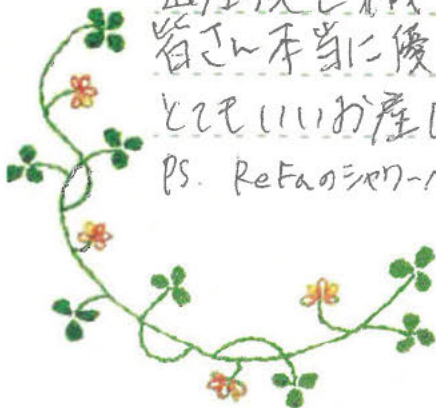 皆さん本当に優
とてもいいお産
PS. ReFaのシャワー